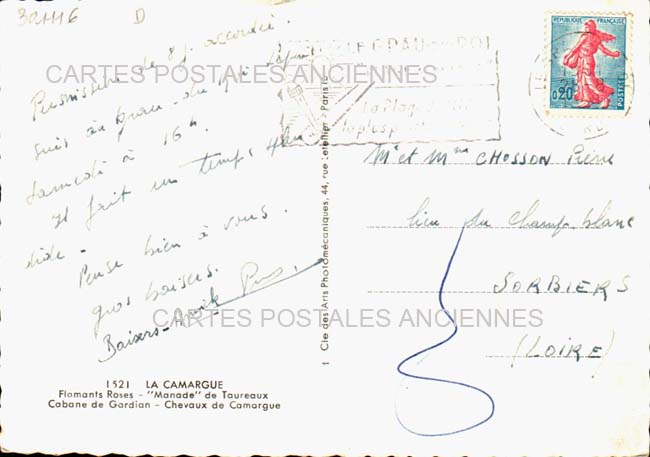 321116 D
Permission de 8j. accordée.
suis au grau-du-roi depuis
samedi à 16h.
Il fait un temps splen
dide -
Pense bien à vous
gros baisers.
Baisers -
LE GRAU DU ROI
la plus
REPUBLIQUE FRANÇAISE
0,20
POSTES
CARTES POSTALES ANCIENNES
Mr et Mme CHOSSON Pierre
lieu du Champ blanc
SORBIERS
(LOIRE)
CARTES POSTALES ANCIENNES
1 Cie des Arts Photomécaniques, 44, rue Letellier - Paris 15
1521 LA CAMARGUE
Flamants Roses - "Manade" de Taureaux
Cabane de Gardian - Chevaux de Camargue